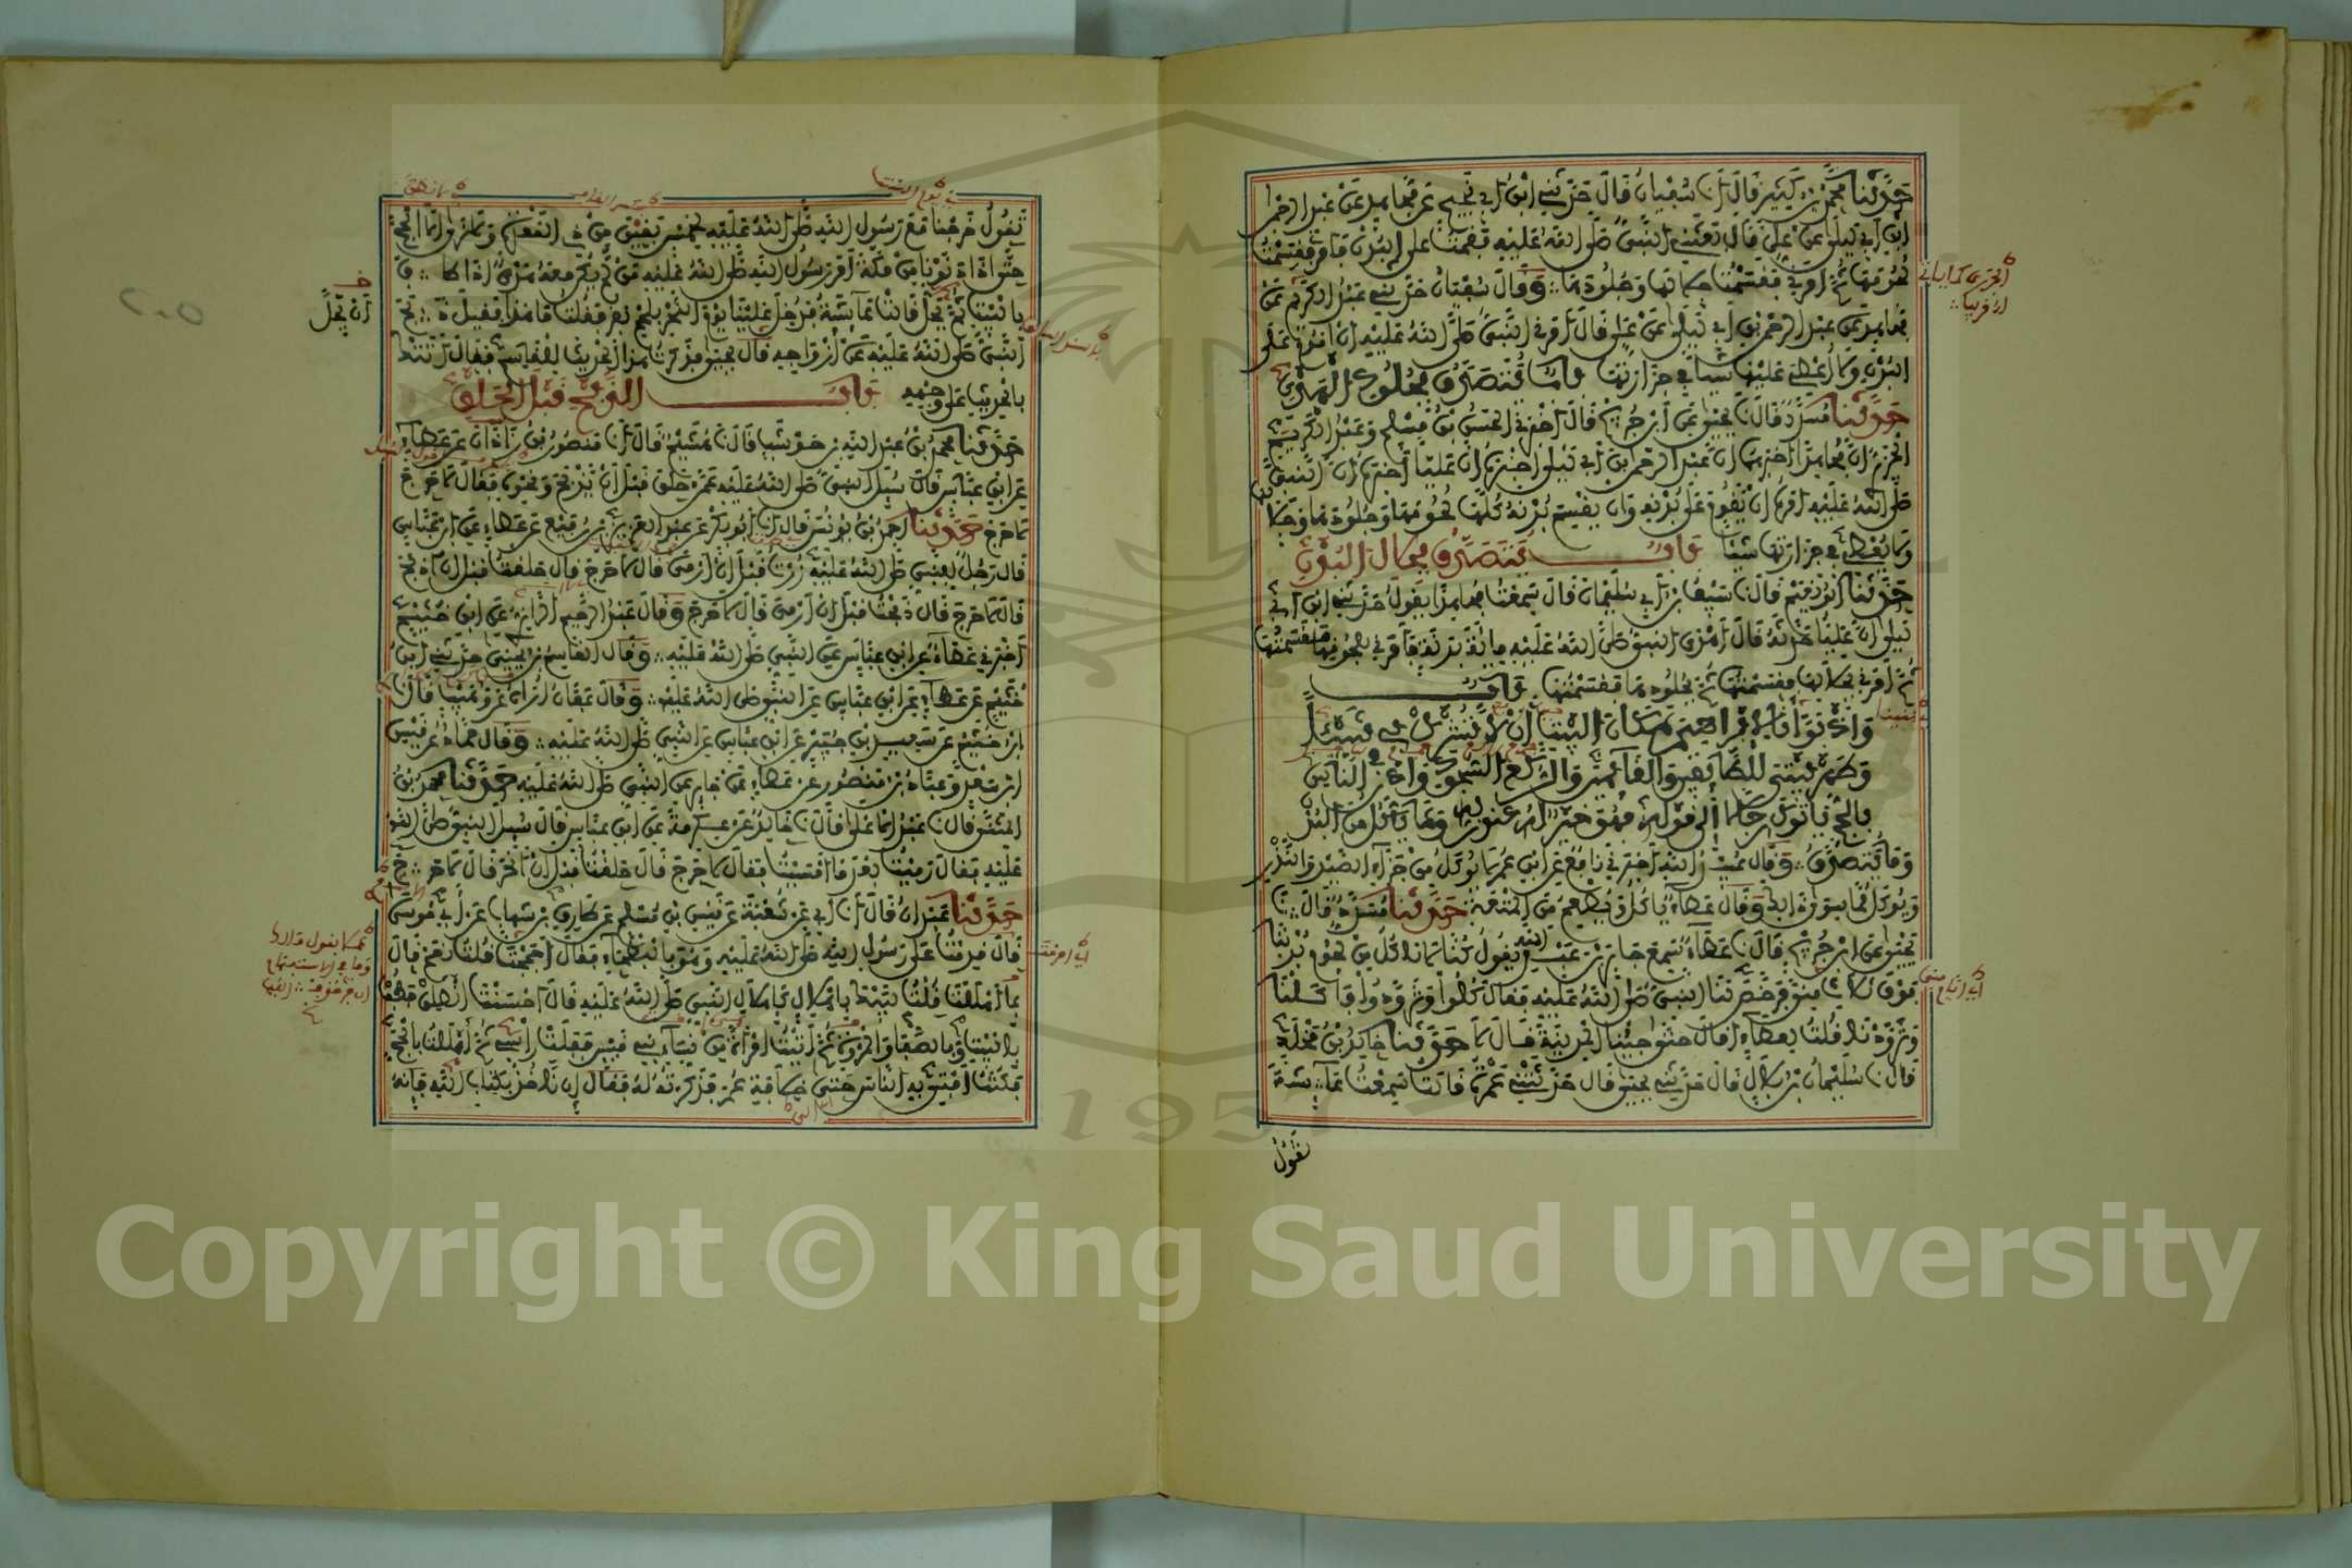 حدثنا محمد بن كثير قال انا سفيان قال حدثني ابن ابي نجيح عن مجاهد عن عبد الرحمن
ابن ابي ليلى عن علي قال بعثني النبي صلى الله عليه فقمت على البدن فامرني فقسمت
لحومها ثم امرني فقسمت جلالها وجلودها وقال سفيان حدثني عبد الكريم عن
مجاهد عن عبد الرحمن بن ابي ليلى عن علي قال امرني النبي صلى الله عليه ان اقوم على
البدن ولا اعطي عليها شيئا في جزارتها باب يتصدق بجلود الهدي
حدثنا مسدد قال نا يحيى عن ابن جريج قال اخبرني الحسن بن مسلم وعبد الكريم
الجزري ان مجاهدا اخبرهما ان عبد الرحمن بن ابي ليلى اخبره ان عليا اخبره ان النبي
صلى الله عليه امره ان يقوم على بدنه وان يقسم بدنه كلها لحومها وجلودها وجلالها
ولا يعطي في جزارتها شيئا باب يتصدق بجلال البدن
حدثنا ابو نعيم قال نا سيف بن ابي سليمان قال سمعت مجاهدا يقول حدثني ابن ابي
ليلى ان عليا حدثه قال اهدى النبي صلى الله عليه مائة بدنة فامرني بلحومها فقسمتها
ثم امرني بجلالها فقسمتها ثم بجلودها فقسمتها باب
واذ بوأنا لابراهيم مكان البيت ان لا تشرك بي شيئا
وطهر بيتي للطائفين والقائمين والركع السجود واذن في الناس
بالحج ياتوك رجالا الى قوله فهو خير له عند ربه وما ياكل من البدن
وما يتصدق وقال عبيد الله اخبرني نافع عن ابن عمر لا يوكل من جزاء الصيد والنذر
ويوكل مما سوى ذلك وقال عطاء ياكل ويطعم من المتعة حدثنا مسدد قال نا
يحيى عن ابن جريج قال نا عطاء سمع جابر بن عبد الله يقول كنا لا ناكل من لحوم بدننا
فوق ثلاث منى فرخص لنا النبي صلى الله عليه فقال كلوا وتزودوا فاكلنا
وتزودنا قلت لعطاء اقال حتى جئنا المدينة قال لا حدثنا خالد بن مخلد
قال نا سليمان بن بلال قال حدثني يحيى قال حدثتني عمرة قالت سمعت عائشة
تقول
تقول خرجنا مع رسول الله صلى الله عليه لخمس بقين من ذي القعدة ولا نرى الا الحج
حتى اذا دنونا من مكة امر رسول الله صلى الله عليه من لم يكن معه هدي اذا طاف
بالبيت ثم يحل قالت عائشة فدخل علينا يوم النحر بلحم بقر فقلت ما هذا فقيل ذبح
النبي صلى الله عليه عن ازواجه قال يحيى فذكرت هذا الحديث للقاسم فقال اتتك
بالحديث على وجهه باب الذبح قبل الحلق
حدثنا محمد بن عبد الله بن حوشب قال نا هشيم قال انا منصور بن زاذان عن عطاء
عن ابن عباس قال سئل النبي صلى الله عليه عمن حلق قبل ان يذبح ونحوه فقال لا حرج
لا حرج حدثنا احمد بن يونس قال انا ابو بكر عن عبد العزيز بن رفيع عن عطاء عن ابن عباس
قال رجل للنبي صلى الله عليه زرت قبل ان ارمي قال لا حرج قال حلقت قبل ان اذبح
قال لا حرج قال ذبحت قبل ان ارمي قال لا حرج وقال عبد الرحيم الرازي عن ابن خثيم
اخبرني عطاء عن ابن عباس عن النبي صلى الله عليه وقال القاسم بن يحيى حدثني ابن
خثيم عن عطاء عن ابن عباس عن النبي صلى الله عليه وقال عفان اراه عن وهيب قال نا
ابن خثيم عن سعيد بن جبير عن ابن عباس عن النبي صلى الله عليه وقال حماد عن قيس
ابن سعد وعباد بن منصور عن عطاء عن جابر عن النبي صلى الله عليه حدثنا محمد بن
المثنى قال نا عبد الاعلى قال نا خالد عن عكرمة عن ابن عباس قال سئل النبي صلى الله
عليه فقال رميت بعد ما امسيت فقال لا حرج قال حلقت قبل ان انحر قال لا حرج
حدثنا عبدان قال انا ابي عن شعبة عن قيس بن مسلم عن طارق بن شهاب عن ابي موسى
قال قدمت على رسول الله صلى الله عليه وهو بالبطحاء فقال احججت قلت نعم قال
بما اهللت قلت لبيك باهلال كاهلال النبي صلى الله عليه قال احسنت انطلق فطف
بالبيت وبالصفا والمروة ثم اتيت امراة من نساء بني قيس ففلت راسي ثم اهللت بالحج
فكنت افتي به الناس حتى خلافة عمر فذكرته له فقال ان ناخذ بكتاب الله فانه
ان يحل
Copyright © King Saud University
1957